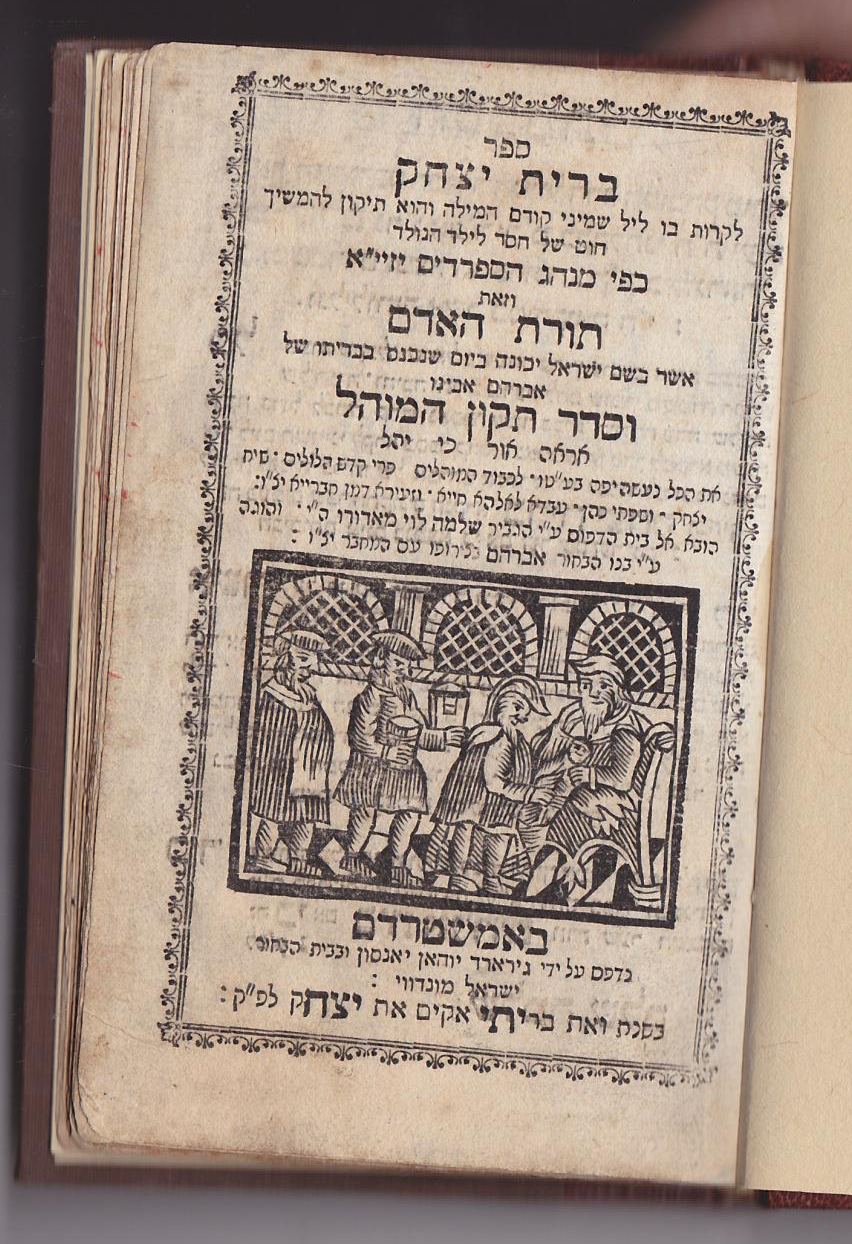 ספר
ברית יצחק
לקרות בו ליל שמיני קודם המילה והוא תיקון להמשיך
חוט של חסר לילד הנולד
כפי מנהג הספרדים יזיי״א
וזאת
תורת האדם
אשר בשם ישראל יכונה ביום שנכנס בבריתו של
אברהם אבינו
וסדר תקון המוהל
אראה אור כי יהל
את הכל נעשה יפה בע״טו׳ לכבוד המוהלים פרי קדש הלולים ׳ שיח
יצחק ׳ ושפתי כהן ׳ עבדא לאלהא חייא ׳ וזעירא דמן חברייא יצ״ו:
הובא אל בית הדפוס ע״י הגביר שלמה לוי מאדורו ה״י ׳ והוגה
ע״י בנו הבחור אברהם בצירופו עם המחבר יצ״ו :
באמשטרדם
נדפס על ידי גירארד יוהאן יאנסון ובבית הבחור
ישראל מונדווי :
בשנת ואת בריתי אקים את יצחק לפ״ק :